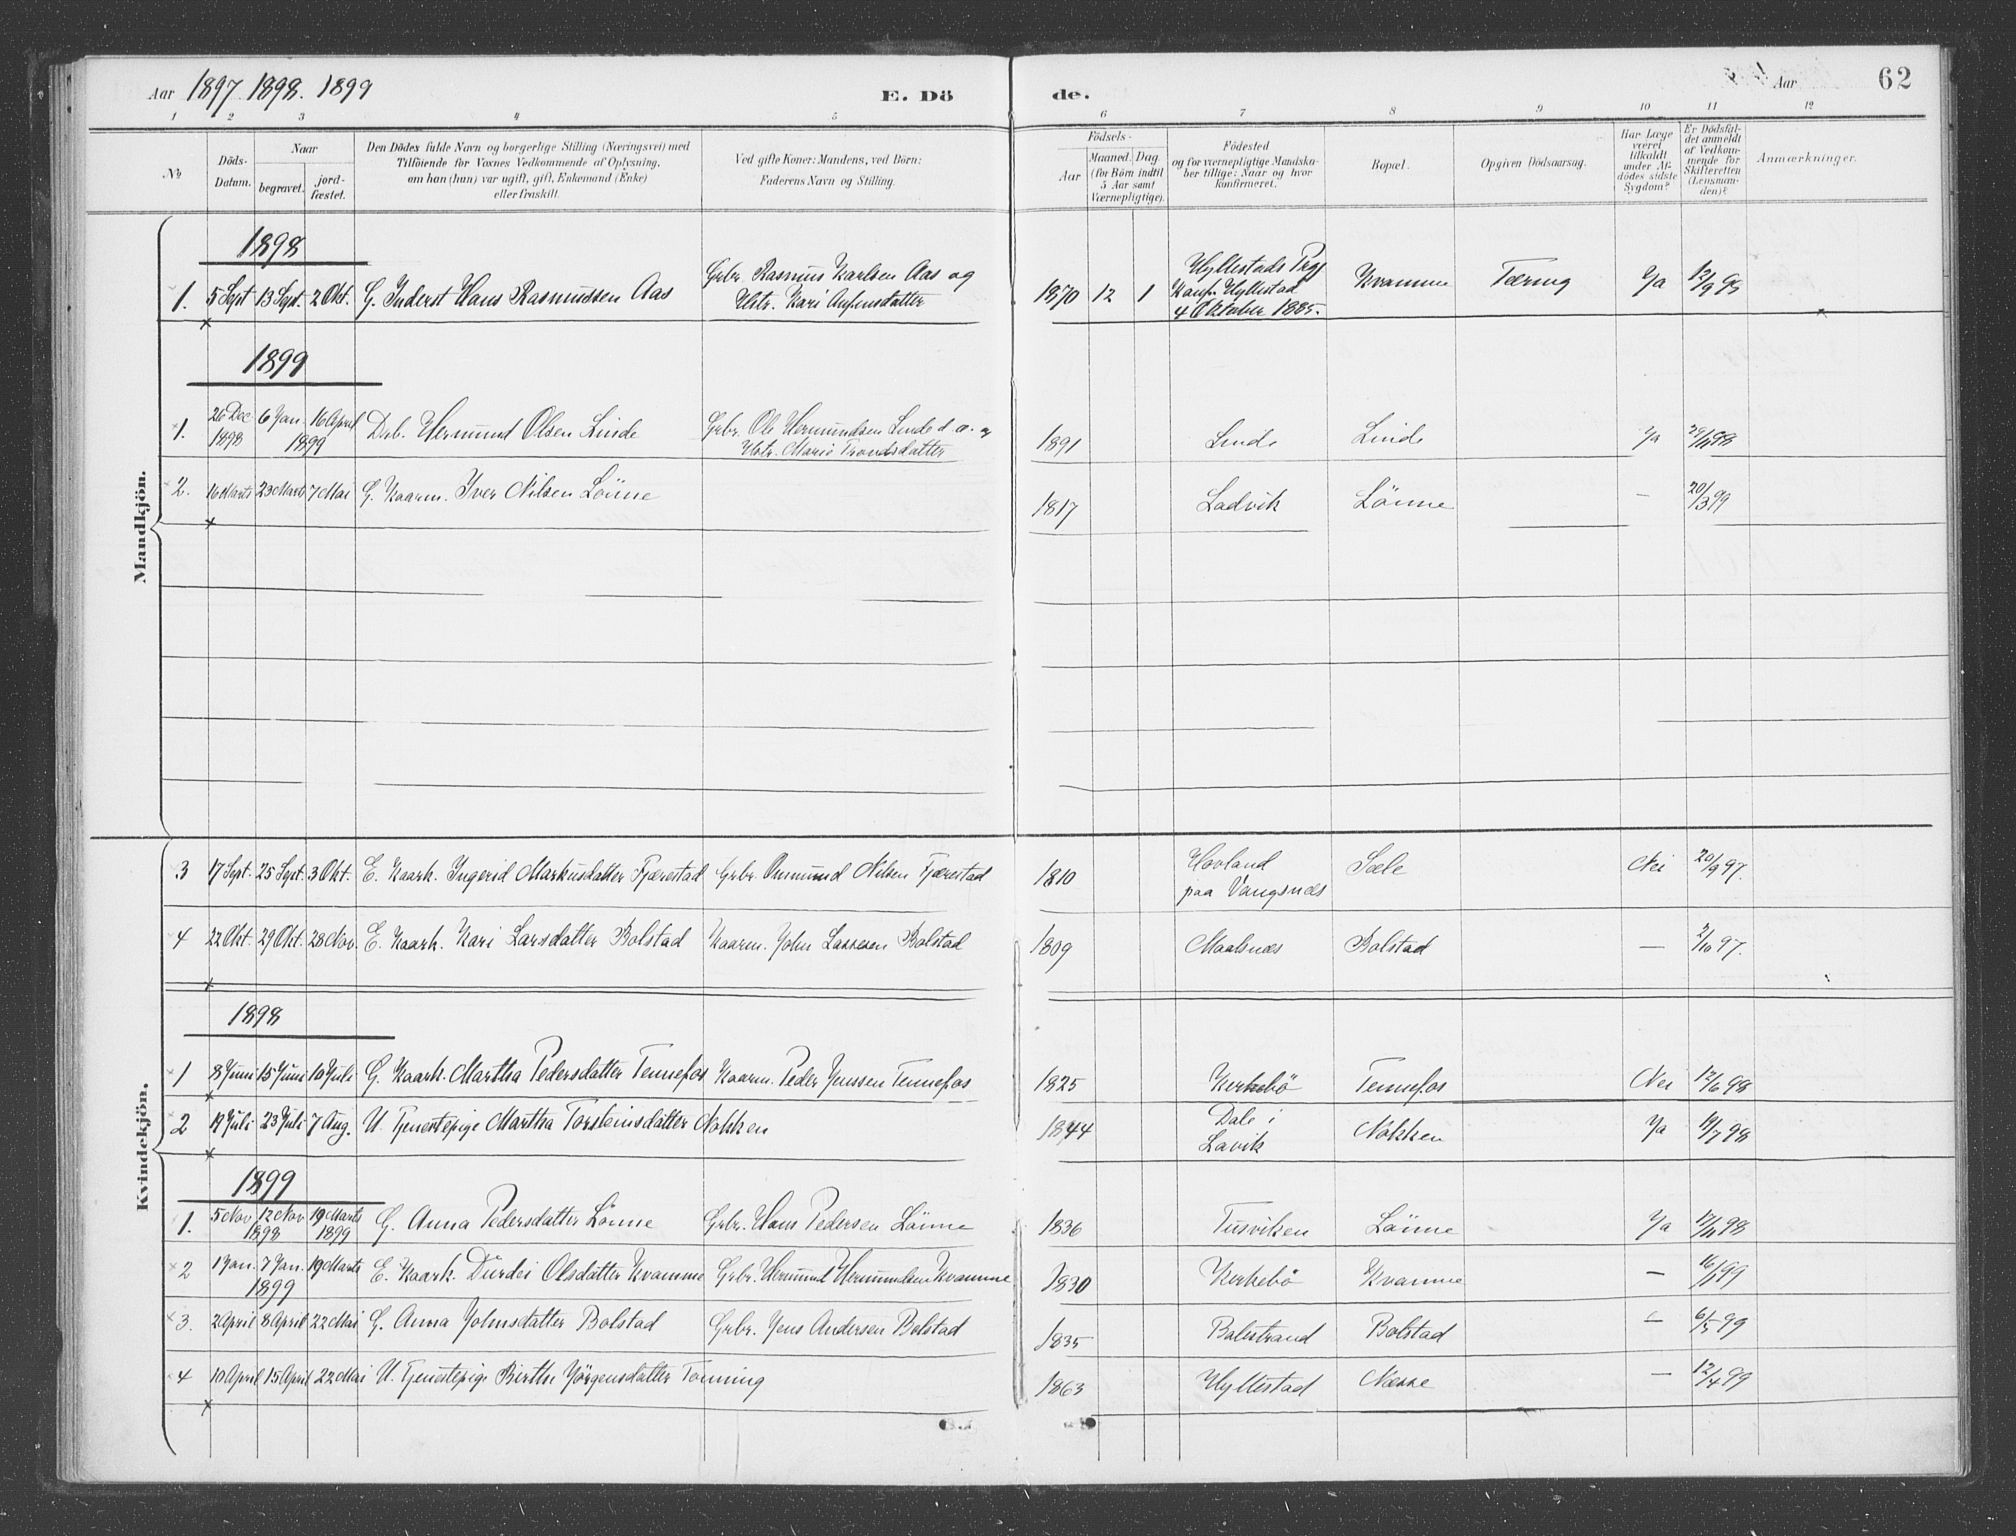 Aar 1897. 1898. 1899
E. Dö
de.
Aar
62
1 2 3 4 5 6 7 8 9 10 11 12
№
Döds-
Datum.
Naar
begravet.
jord-
fæstet.
Den Dödes fulde Navn og borgerlige Stilling (Næringsvei) med
Tilföiende for Voxnes Vedkommende af Oplysning,
om han (hun) var ugift, gift, Enkemand (Enke)
eller fraskilt.
Ved gifte Koner: Mandens, ved Börn:
Faderens Navn og Stilling.
Födsels-
Aar
Maaned. Dag.
(for Börn indtil
5 Aar samt
Værnepligtige).
Födested
og for værnepligtige Mandska-
ber tillige: Naar og hvor
konfirmeret.
Bopæl.
Opgiven Dödsaarsag.
Har Læge
været
tilkaldt
under Af-
dödes sidste
Sygdom?
Er Dödsfal-
det anmeldt
af Vedkom-
mende for
Skifteretten
(Lensman-
den)?
Anmærkninger.
Mandkjön.
1898
1. 5 Sept 13 Sept. 2 Okt. G. Inderst Hans Rasmussen Aas
Grbr. Rasmus Karlsen Aas og
Hstr. Kari
1870 12 1
Hyllestads Prgj
Konf. Hyllestad
4 Oktober 1885.
Kvamme Tæring Ja 12/9 98
1899
1. 26 Dec. 1898 6 Jan. 16 April 1899 Drb. Hermund Olsen Linde
Grbr. Ole Hermundsen Linde
Hstr. Mari Trondsdatter
1891 Linde Linde Ja 98
2. 16 Marts 23 Marts 7 Mai G. Kaarm. Iver Nilsen Lönne
1817 Ladvik Lönne — 20/3 99
Kvindekjön.
3 17 Sept. 25 Sept. 3 Okt. E. Kaark. Ingerid Markusdatter Tjærestad Grbr. Ommund Nilsen Tjærestad
1810 Hovland
paa Vangsnæs
Sæle Nei 20/9 97.
4 22 Okt. 29 Okt. 28 Nov. E. Kaark. Kari Larsdatter Bolstad Kaarm. John Lassesen Bolstad
1809 Maalsnæs Bolstad — 2/10 97.
1898
1 8 Juni 15 Juni 10 Juli G. Kaark. Martha Pedersdatter Tennefos Kaarm. Peder Jenssen Tennefos
1825 Kirkebö Tennefos Nei 12/6 98
2 Juli 23 Juli 7 Aug. U. Tjenestepige Martha Torsteinsdatter Nokken
1844 Dale i
Lavik
Nokken Ja 19/7 98
1899
1. 5 Nov 12 Nov 1898 19 Marts 1899 G. Anna Pedersdatter Lönne Grbr. Hans Pedersen Lönne
1836 Tusviken Lönne Ja 17/11 98
2 1 Jan. 7 Jan. 1899 19 Marts E. Kaark. Durdei Olsdatter Kvamme Grbr. Hermund Hermundsen Kvamme
1830 Kirkebö Kvamme — 16/1 99
3. 2 April 8 April 22 Mai G. Anna Johnsdatter Bolstad Grbr. Jens Andersen Bolstad
1835 Balestrand Bolstad — 6/5 99
4 10 April 15 April 22 Mai U. Tjenestepige Birthe Jörgensdatter Tonning
1863 Hyllestad Næsse — 12/4 99